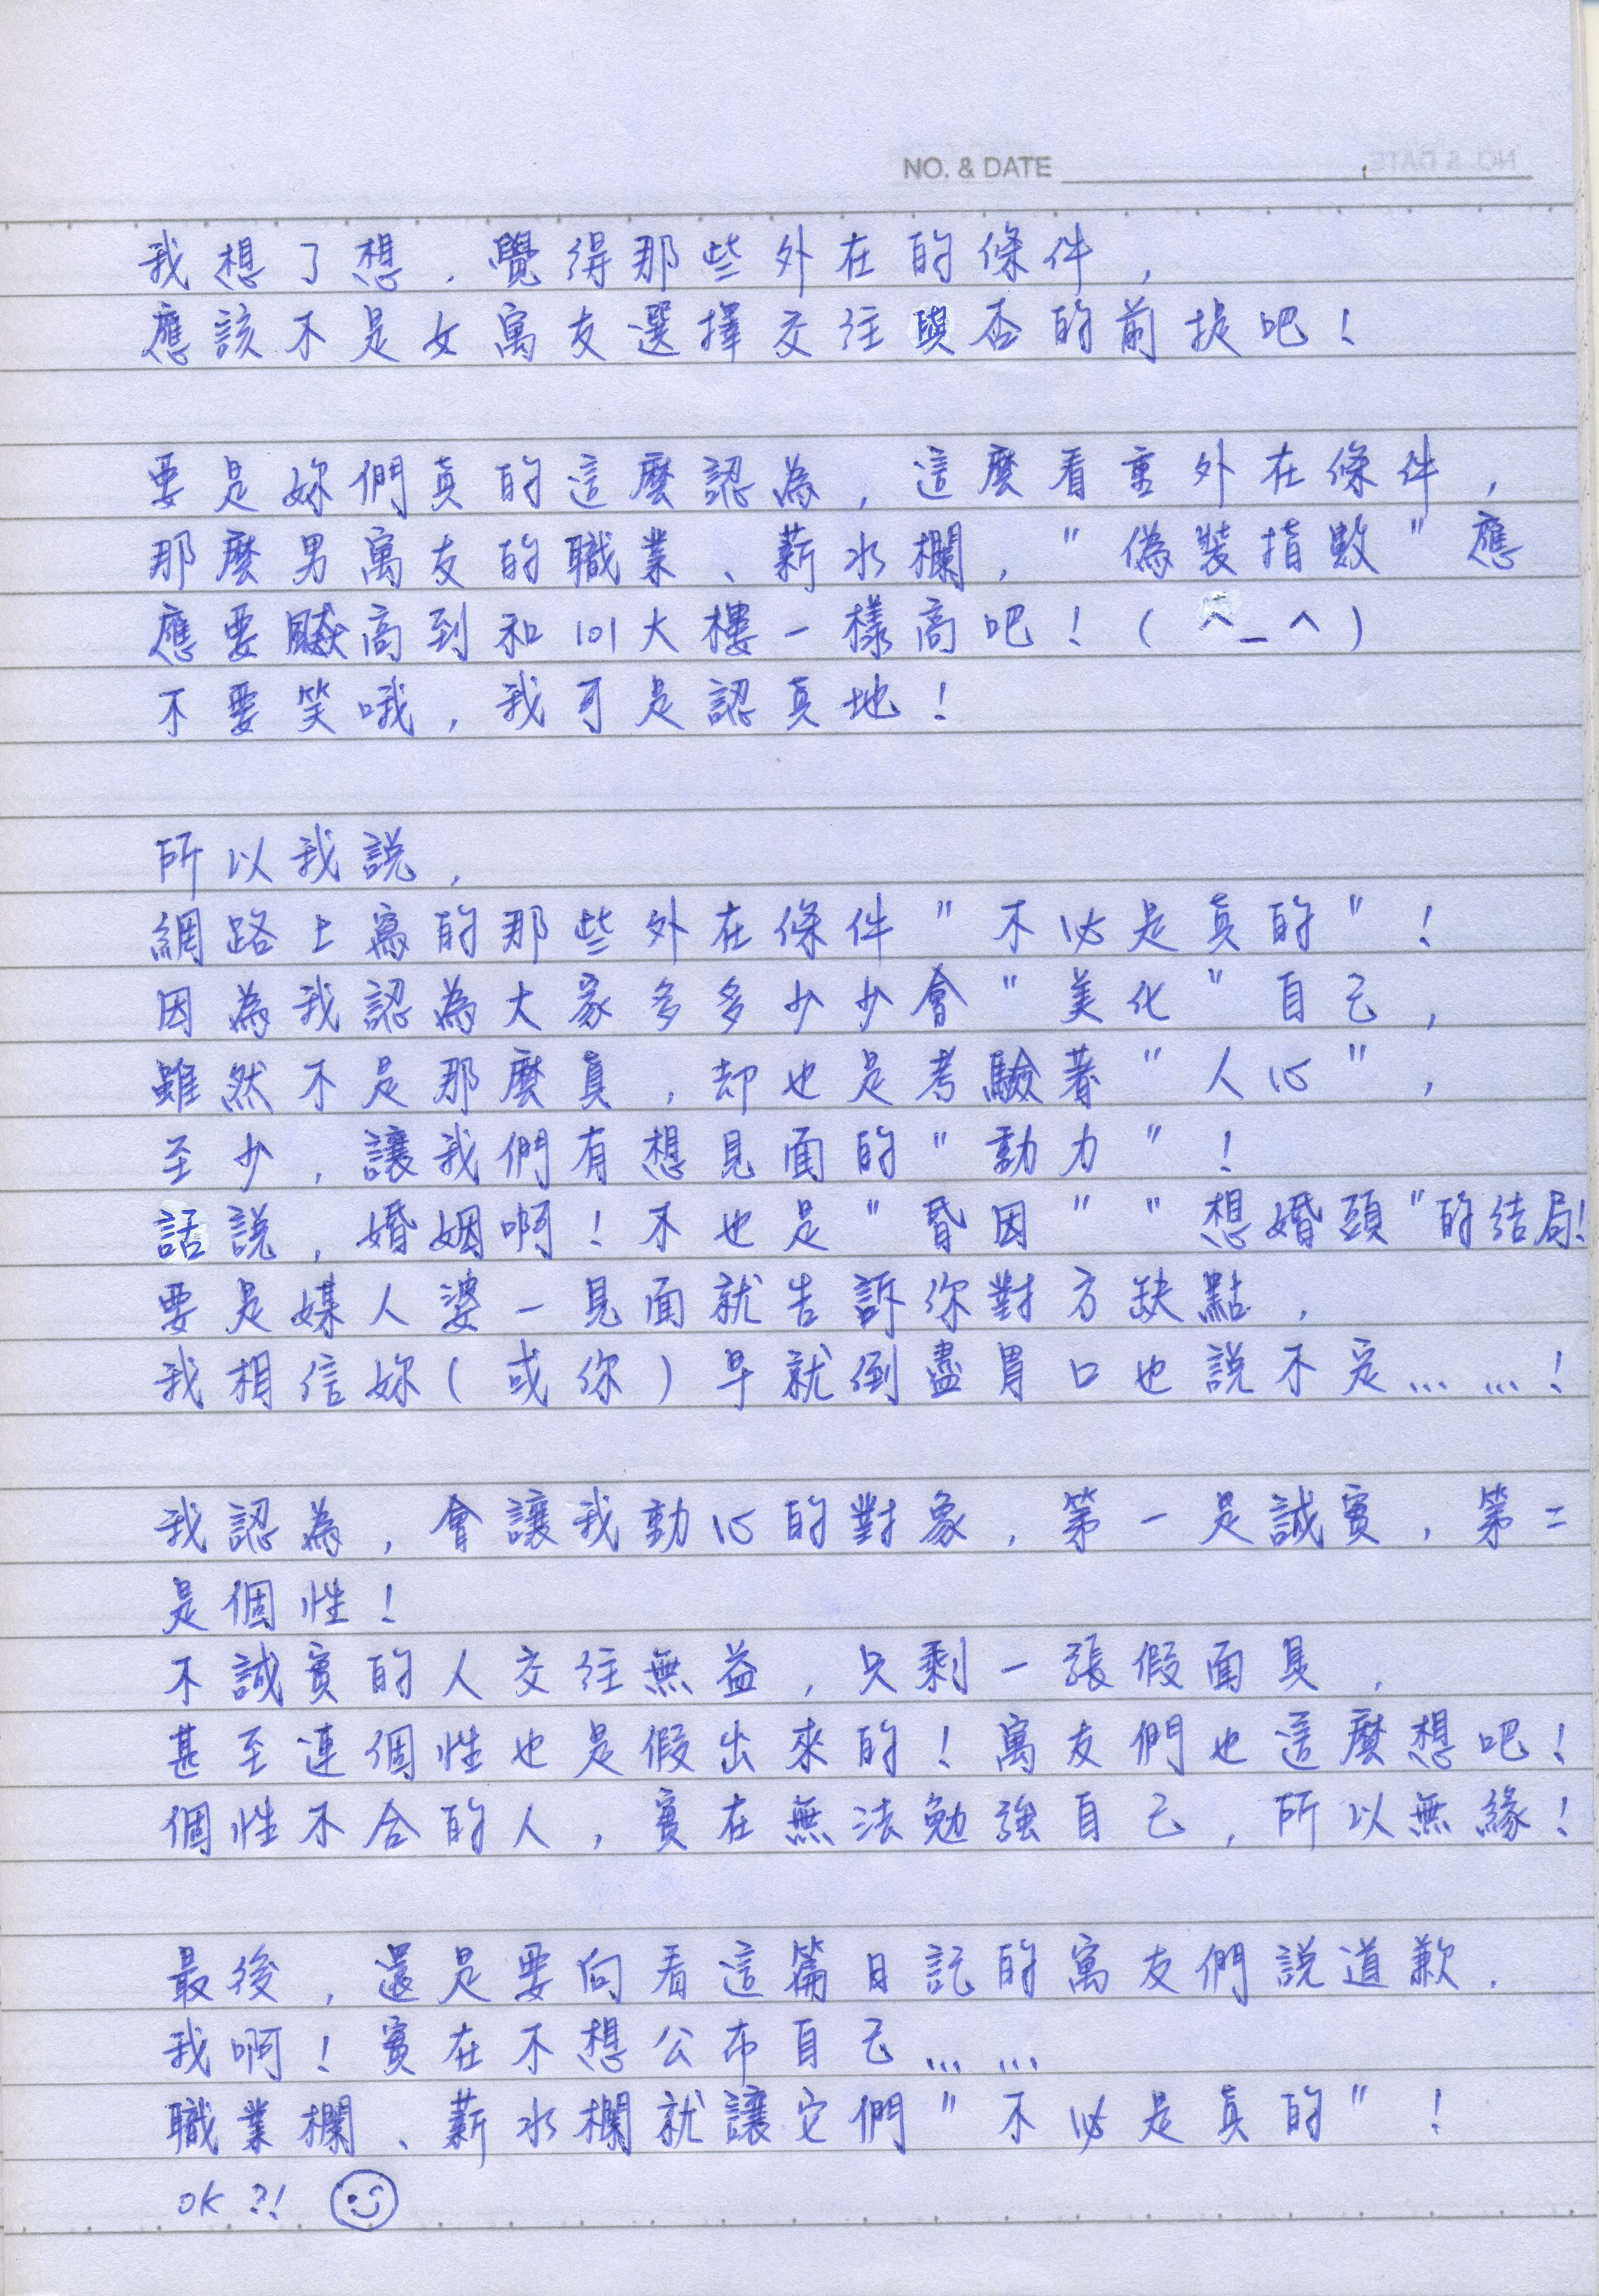 NO. & DATE
我想了想，覺得那些外在的條件，
應該不是女寓友選擇交往與否的前提吧！
要是妳們真的這麼認為，這麼看重外在條件，
那麼男寓友的職業、薪水欄，"偽裝指數"應
應要飆高到和101大樓一樣高吧！(^_^)
不要笑哦，我可是認真地！
所以我說，
網路上寫的那些外在條件"不必是真的"！
因為我認為大家多多少少會"美化"自己，
雖然不是那麼真，却也是考驗著"人心"，
至少，讓我們有想見面的"動力"！
話說，婚姻啊！不也是"昏因""想婚頭"的结局！
要是媒人婆一見面就告訴你對方缺點，
我相信妳(或你)早就倒盡胃口也說不定……！
我認為，會讓我動心的對象，第一是誠實，第二
是個性！
不誠實的人交往無益，只剩一張假面具，
甚至連個性也是假出來的！寓友們也這麼想吧！
個性不合的人，實在無法勉強自己，所以無緣！
最後，還是要向看這篇日記的寓友們說道歉，
我啊！實在不想公布自己……
職業欄、薪水欄就讓它們"不必是真的"！
OK?!